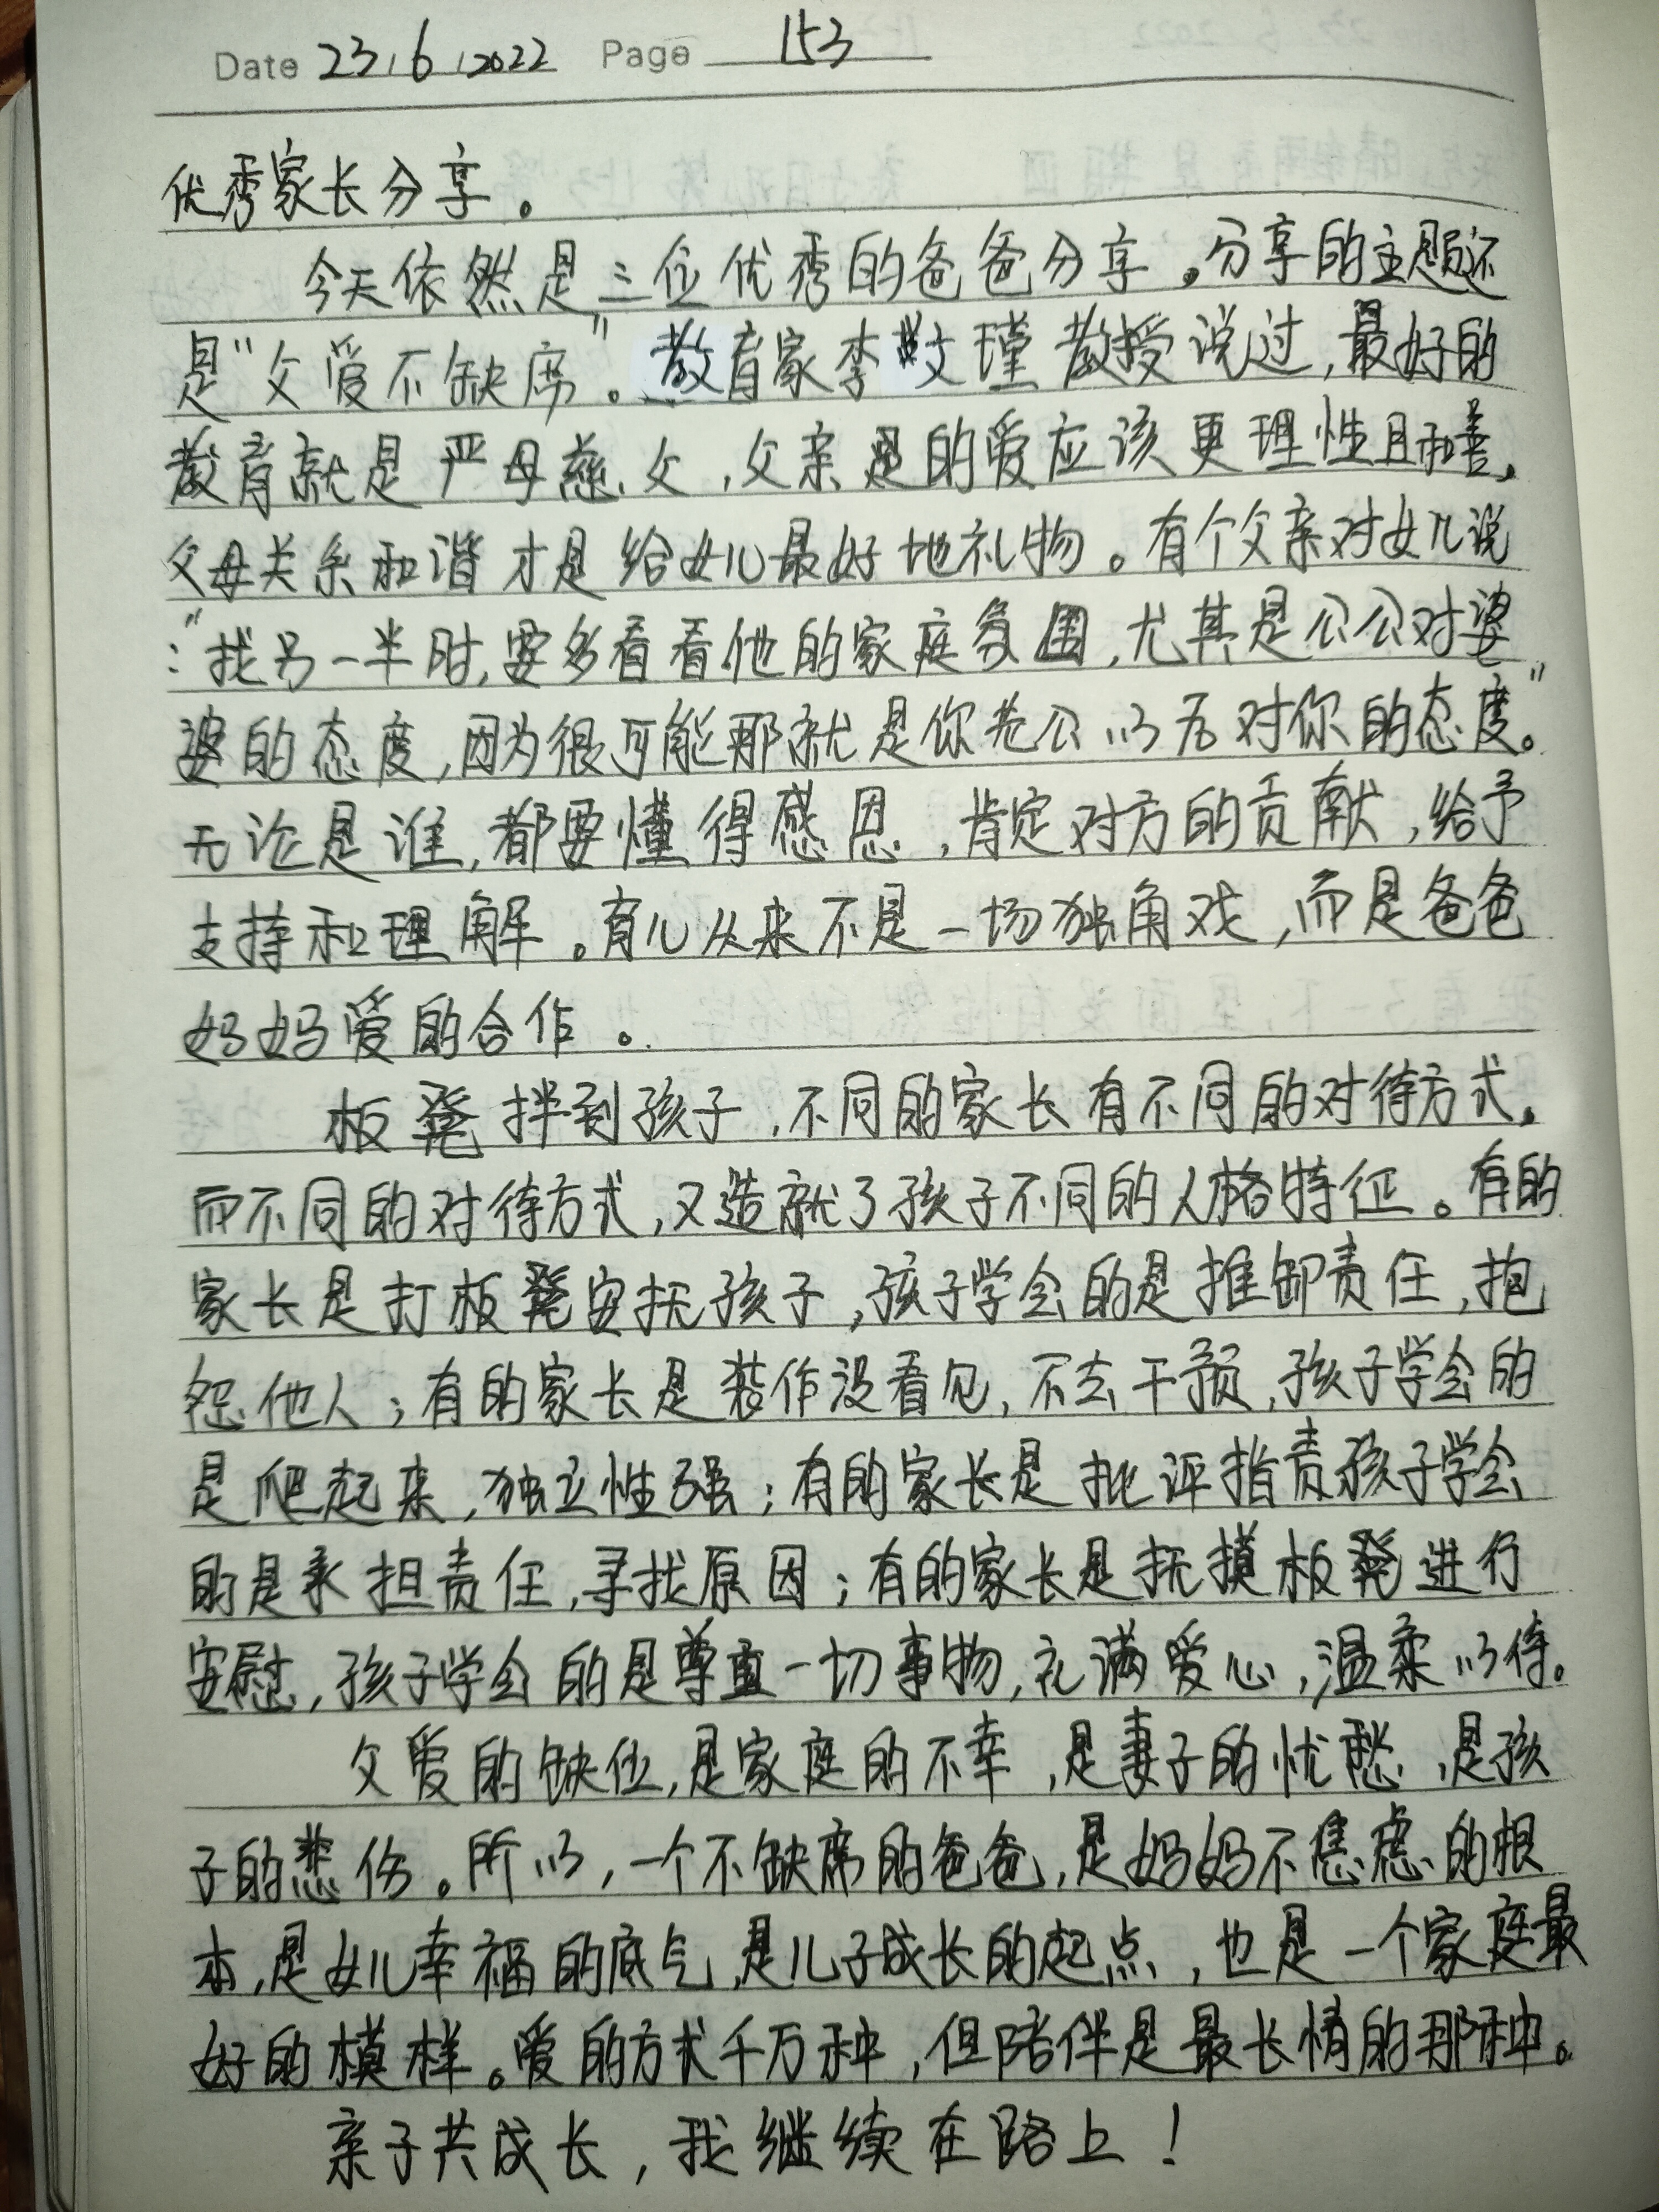 Date 23.6.2022 Page 153
优秀家长分享。
今天依然是三位优秀的爸爸分享。分享的主题还
是"父爱不缺席"。教育家李玫瑾教授说过,最好的
教育就是严母慈父,父亲是的爱应该更理性且和善,
父母关系和谐才是给女儿最好地礼物。有个父亲对女儿说
:"找另一半时,要多看看他的家庭氛围,尤其是公公对婆
婆的态度,因为很可能那就是你老公以后对你的态度。"
无论是谁,都要懂得感恩,肯定对方的贡献,给予
支持和理解。育儿从来不是一场独角戏,而是爸爸
妈妈爱的合作。
板凳拌到孩子,不同的家长有不同的对待方式,
而不同的对待方式,又造就了孩子不同的人格特征。有的
家长是打板凳安抚孩子,孩子学会的是推卸责任,抱
怨他人;有的家长是装作没看见,不去干预,孩子学会的
是爬起来,独立性强;有的家长是批评指责孩子学会
的是承担责任,寻找原因;有的家长是抚摸板凳进行
安慰,孩子学会的是尊重一切事物,充满爱心,温柔以待。
父爱的缺位,是家庭的不幸,是妻子的忧愁,是孩
子的悲伤。所以,一个不缺席的爸爸,是妈妈不焦虑的根
本,是女儿幸福的底气,是儿子成长的起点,也是一个家庭最
好的模样。爱的方式千万种,但陪伴是最长情的那种。
亲子共成长,我继续在路上!